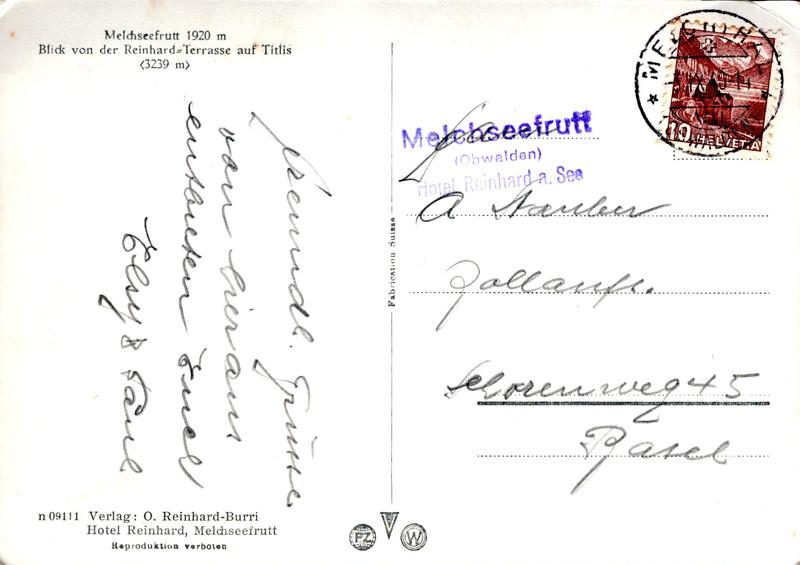 Melchseefrutt 1920 m
Blick von der Reinhard-Terrasse auf Titlis
(3239 m)
freundl. Grüsse
von hier aus
entbieten Euch
Elsy & Paul
n 09111 Verlag: O. Reinhard-Burri
Hotel Reinhard, Melchseefrutt
Reproduktion verboten
Fabrication Suisse
PZ
W
MELCHTHAL
10 HELVETIA
Melchseefrutt
(Obwalden)
Hotel Reinhard a. See
A Stauber
Zollaufs.
Schorenweg 45
Basel